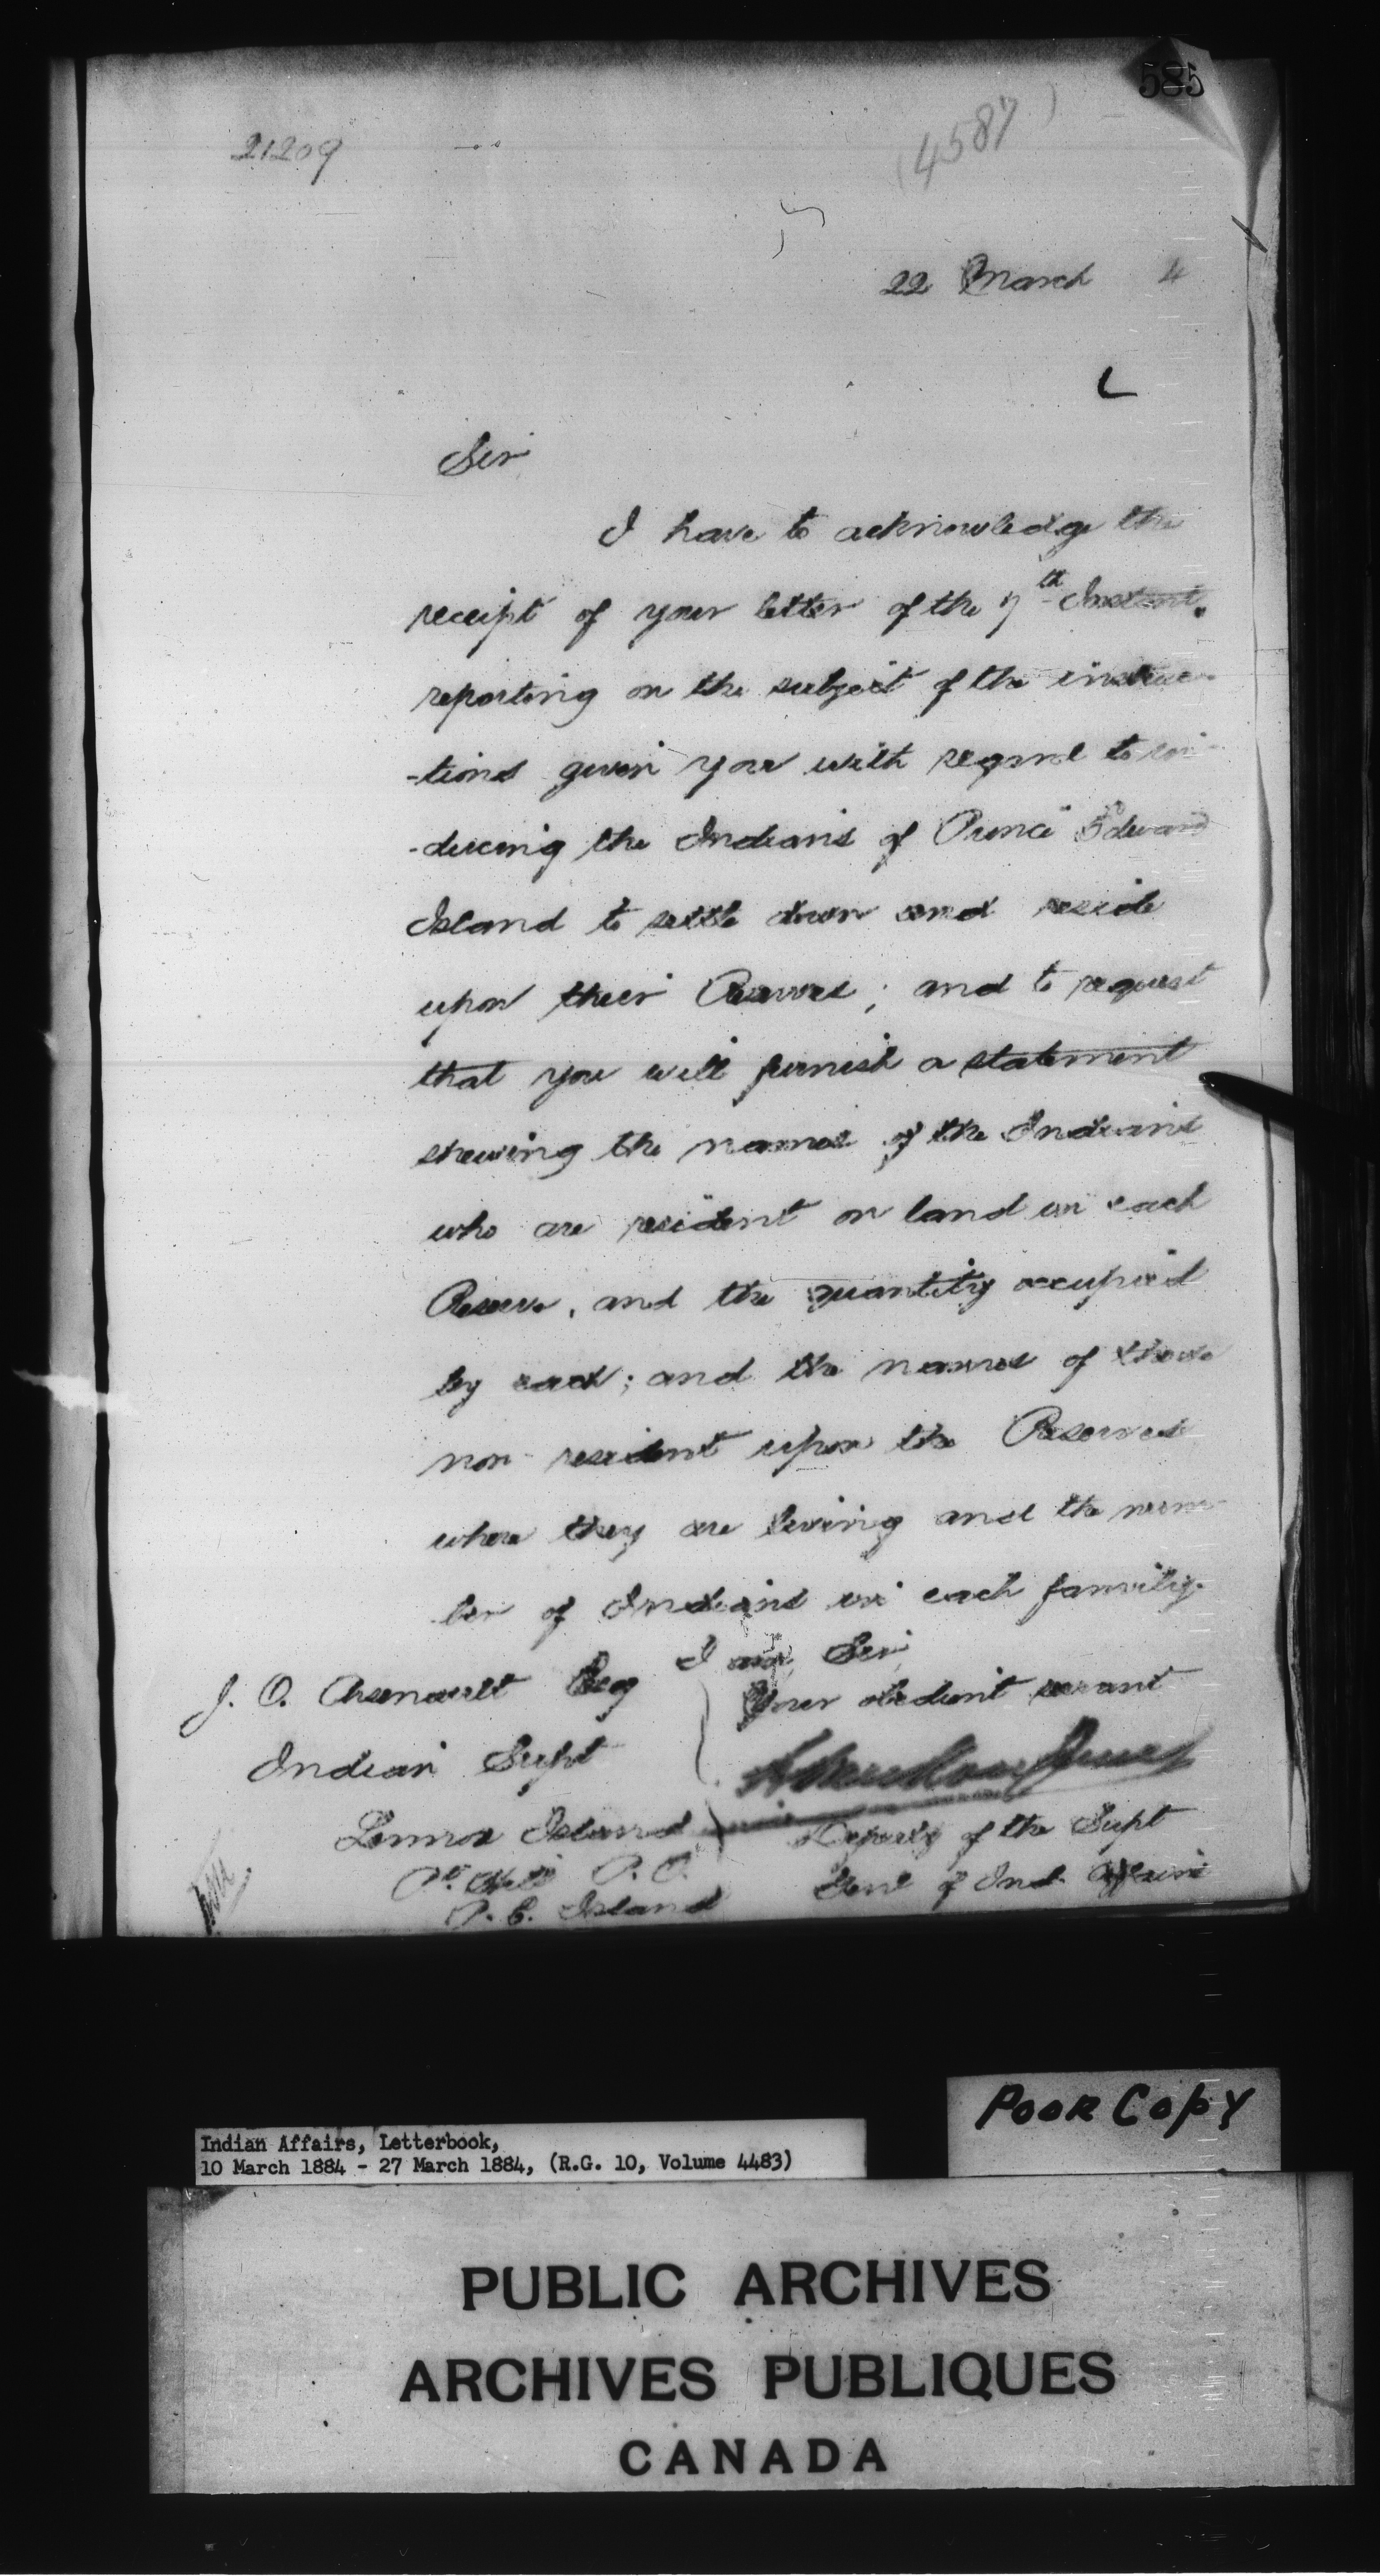 585
21209
(4587)
22 March 4
Sir
I have to acknowledge the
receipt of your letter of the 7th Instant,
reporting on the subject of the instruc-
-tions given you with regard to in-
-ducing the Indians of Prince Edward
Island to settle down and reside
upon their Reserves; and to request
that you will furnish a statement
shewing the names of the Indians
who are resident on land in each
Reserve, and the quantity occupied
by each; and the names of those
non-resident upon the Reserves
where they are living and the num-
ber of Indians in each family.
I am, Sir
Your obedient servant
J. O. Arsenault Esq
Indian Supt
Lennox Island
P. O.
P. E. Island
Deputy of the Supt
Genl of Ind. Affairs
Poor Copy
Indian Affairs, Letterbook,
10 March 1884 - 27 March 1884, (R.G. 10, Volume 4483)
PUBLIC ARCHIVES
ARCHIVES PUBLIQUES
CANADA